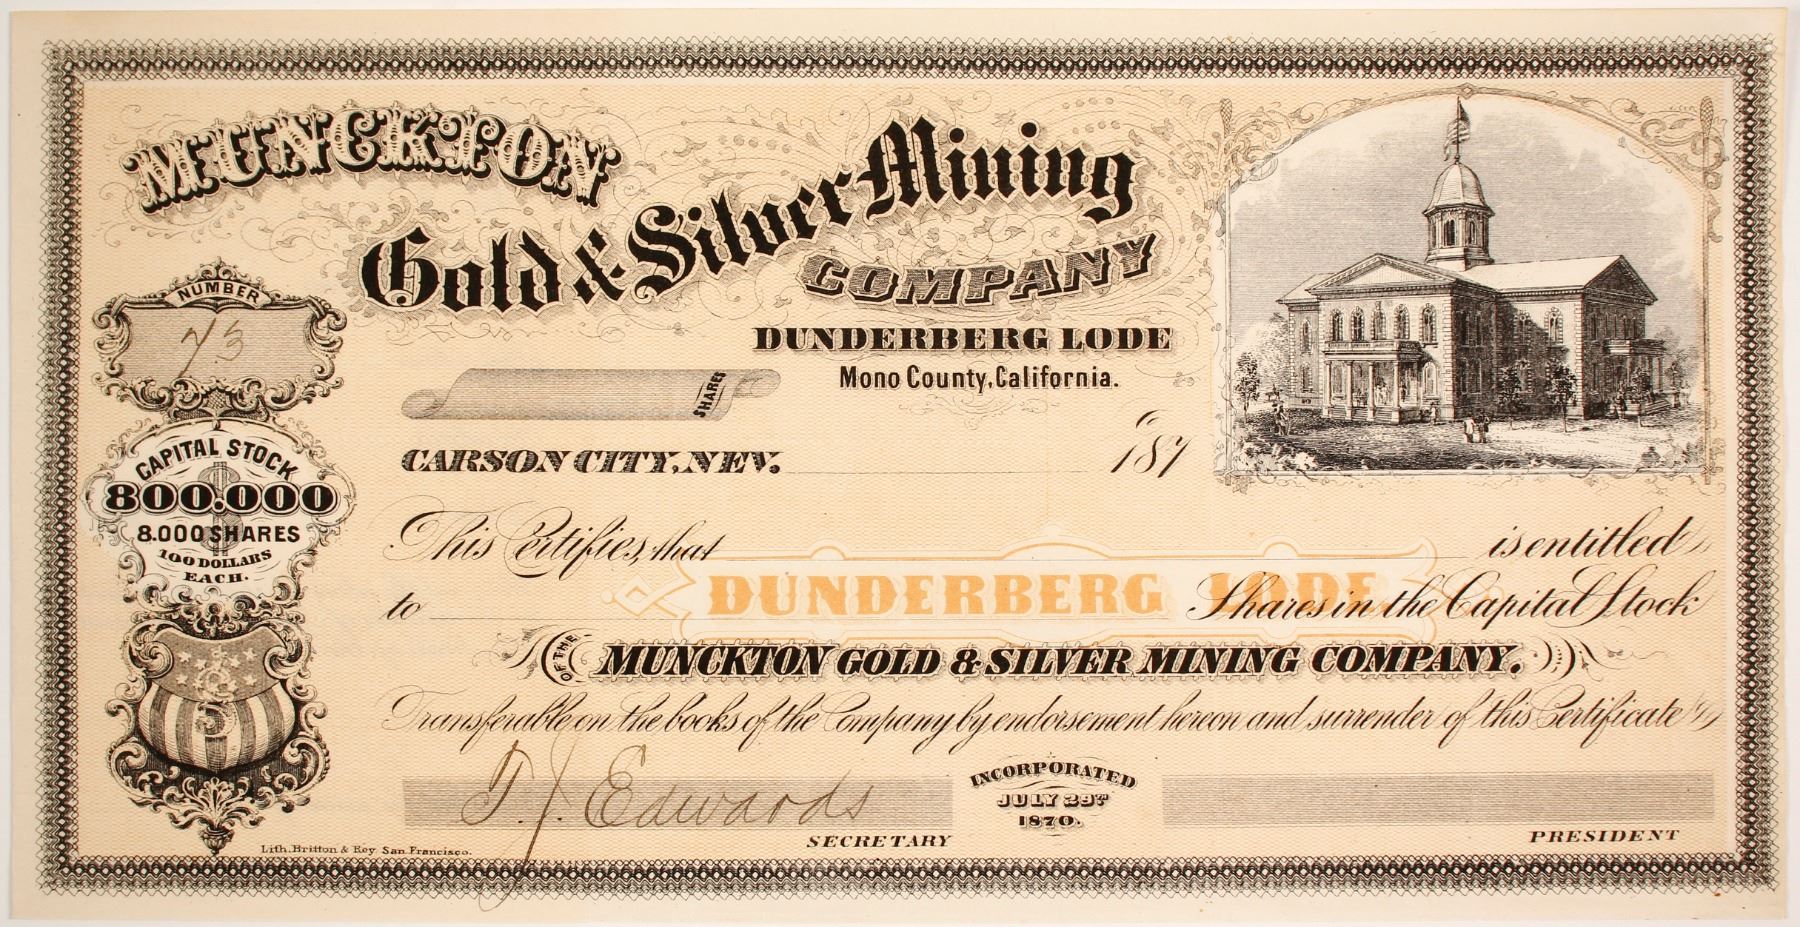 MUNCKTON
Gold & Silver Mining
COMPANY
DUNDERBERG LODE
Mono County, California.
NUMBER
73
SHARES
CAPITAL STOCK
800.000
8.000 SHARES
100 DOLLARS
EACH.
CARSON CITY, NEV. 187
This Certifies, that is entitled
to Shares in the Capital Stock
DUNDERBERG LODE
OF THE MUNCKTON GOLD & SILVER MINING COMPANY.
Transferable on the books of the Company by endorsement hereon and surrender of this Certificate
T. J. Edwards
SECRETARY
INCORPORATED
JULY 29TH
1870.
PRESIDENT
Lith. Britton & Rey San Francisco.